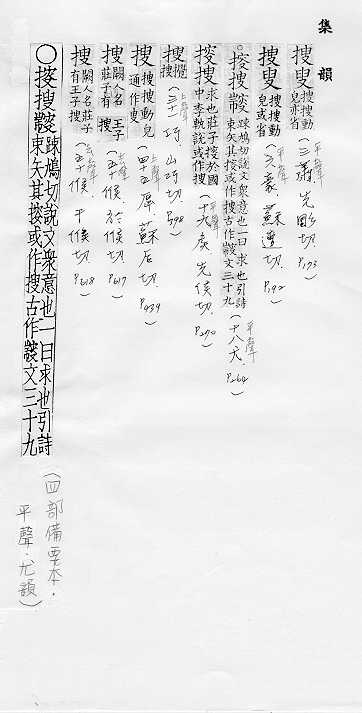 集韻
搜叟 搜搜動兒亦省 平聲(三蕭 先彫切. P.173)
搜叟 搜搜動兒或省 平聲(六豪 蘇遭切. P.192)
○捘搜 疎鳩切說文衆意也一曰求也引詩束矢其捘或作搜古作文三十九 平聲(十八尤. P.262)
捘搜 求也莊子捘於國中李軌說或作搜 平聲(十九侯 先侯切. P.270)
搜 搜攪 上聲(三十一巧 山巧切. P.398)
搜 搜搜動兒通作叟 上聲(四十五厚 蘇后切. P.439)
搜 闕人名莊子有王子搜 去聲(五十候 於候切. P.617)
搜 闕人名莊子有王子搜 去聲(五十候 千候切. P.618)
○捘搜 疎鳩切說文衆意也一曰求也引詩束矢其捘或作搜古作文三十九
(四部備要本.平聲.尤韻)